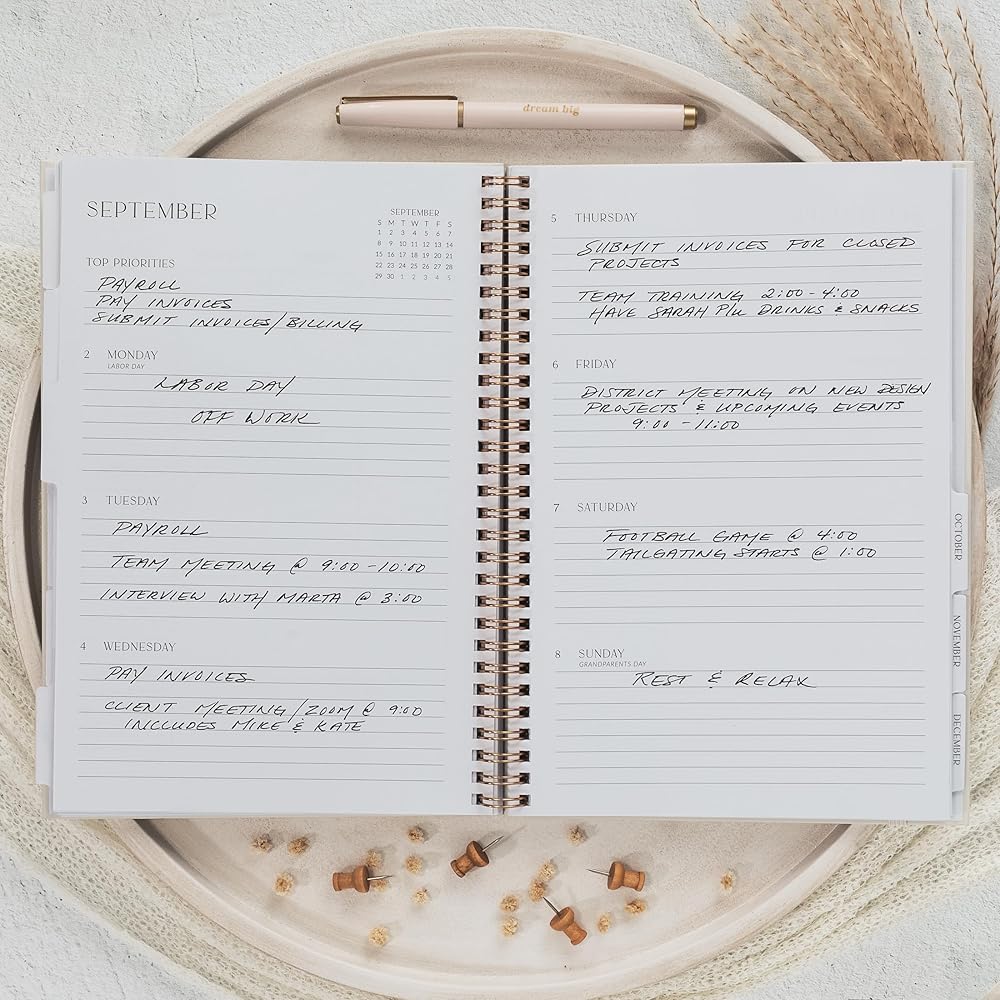 dream big
SEPTEMBER
SEPTEMBER
S M T W T F S
1 2 3 4 5 6 7
8 9 10 11 12 13 14
15 16 17 18 19 20 21
22 23 24 25 26 27 28
29 30 1 2 3 4 5
TOP PRIORITIES
PAYROLL
PAY INVOICES
SUBMIT INVOICES/BILLING
2 MONDAY
LABOR DAY
LABOR DAY
OFF WORK
3 TUESDAY
PAYROLL
TEAM MEETING @ 9:00-10:00
INTERVIEW WITH MARTA @ 3:00
4 WEDNESDAY
PAY INVOICES
CLIENT MEETING/ZOOM @ 9:00
INCLUDES MIKE & KATE
5 THURSDAY
SUBMIT INVOICES FOR CLOSED
PROJECTS
TEAM TRAINING 2:00-4:00
HAVE SARAH P/U DRINKS & SNACKS
6 FRIDAY
DISTRICT MEETING ON NEW DESIGN
PROJECTS & UPCOMING EVENTS
9:00-11:00
7 SATURDAY
FOOTBALL GAME @ 4:00
TAILGATING STARTS @ 1:00
8 SUNDAY
GRANDPARENTS DAY
REST & RELAX
OCTOBER
NOVEMBER
DECEMBER